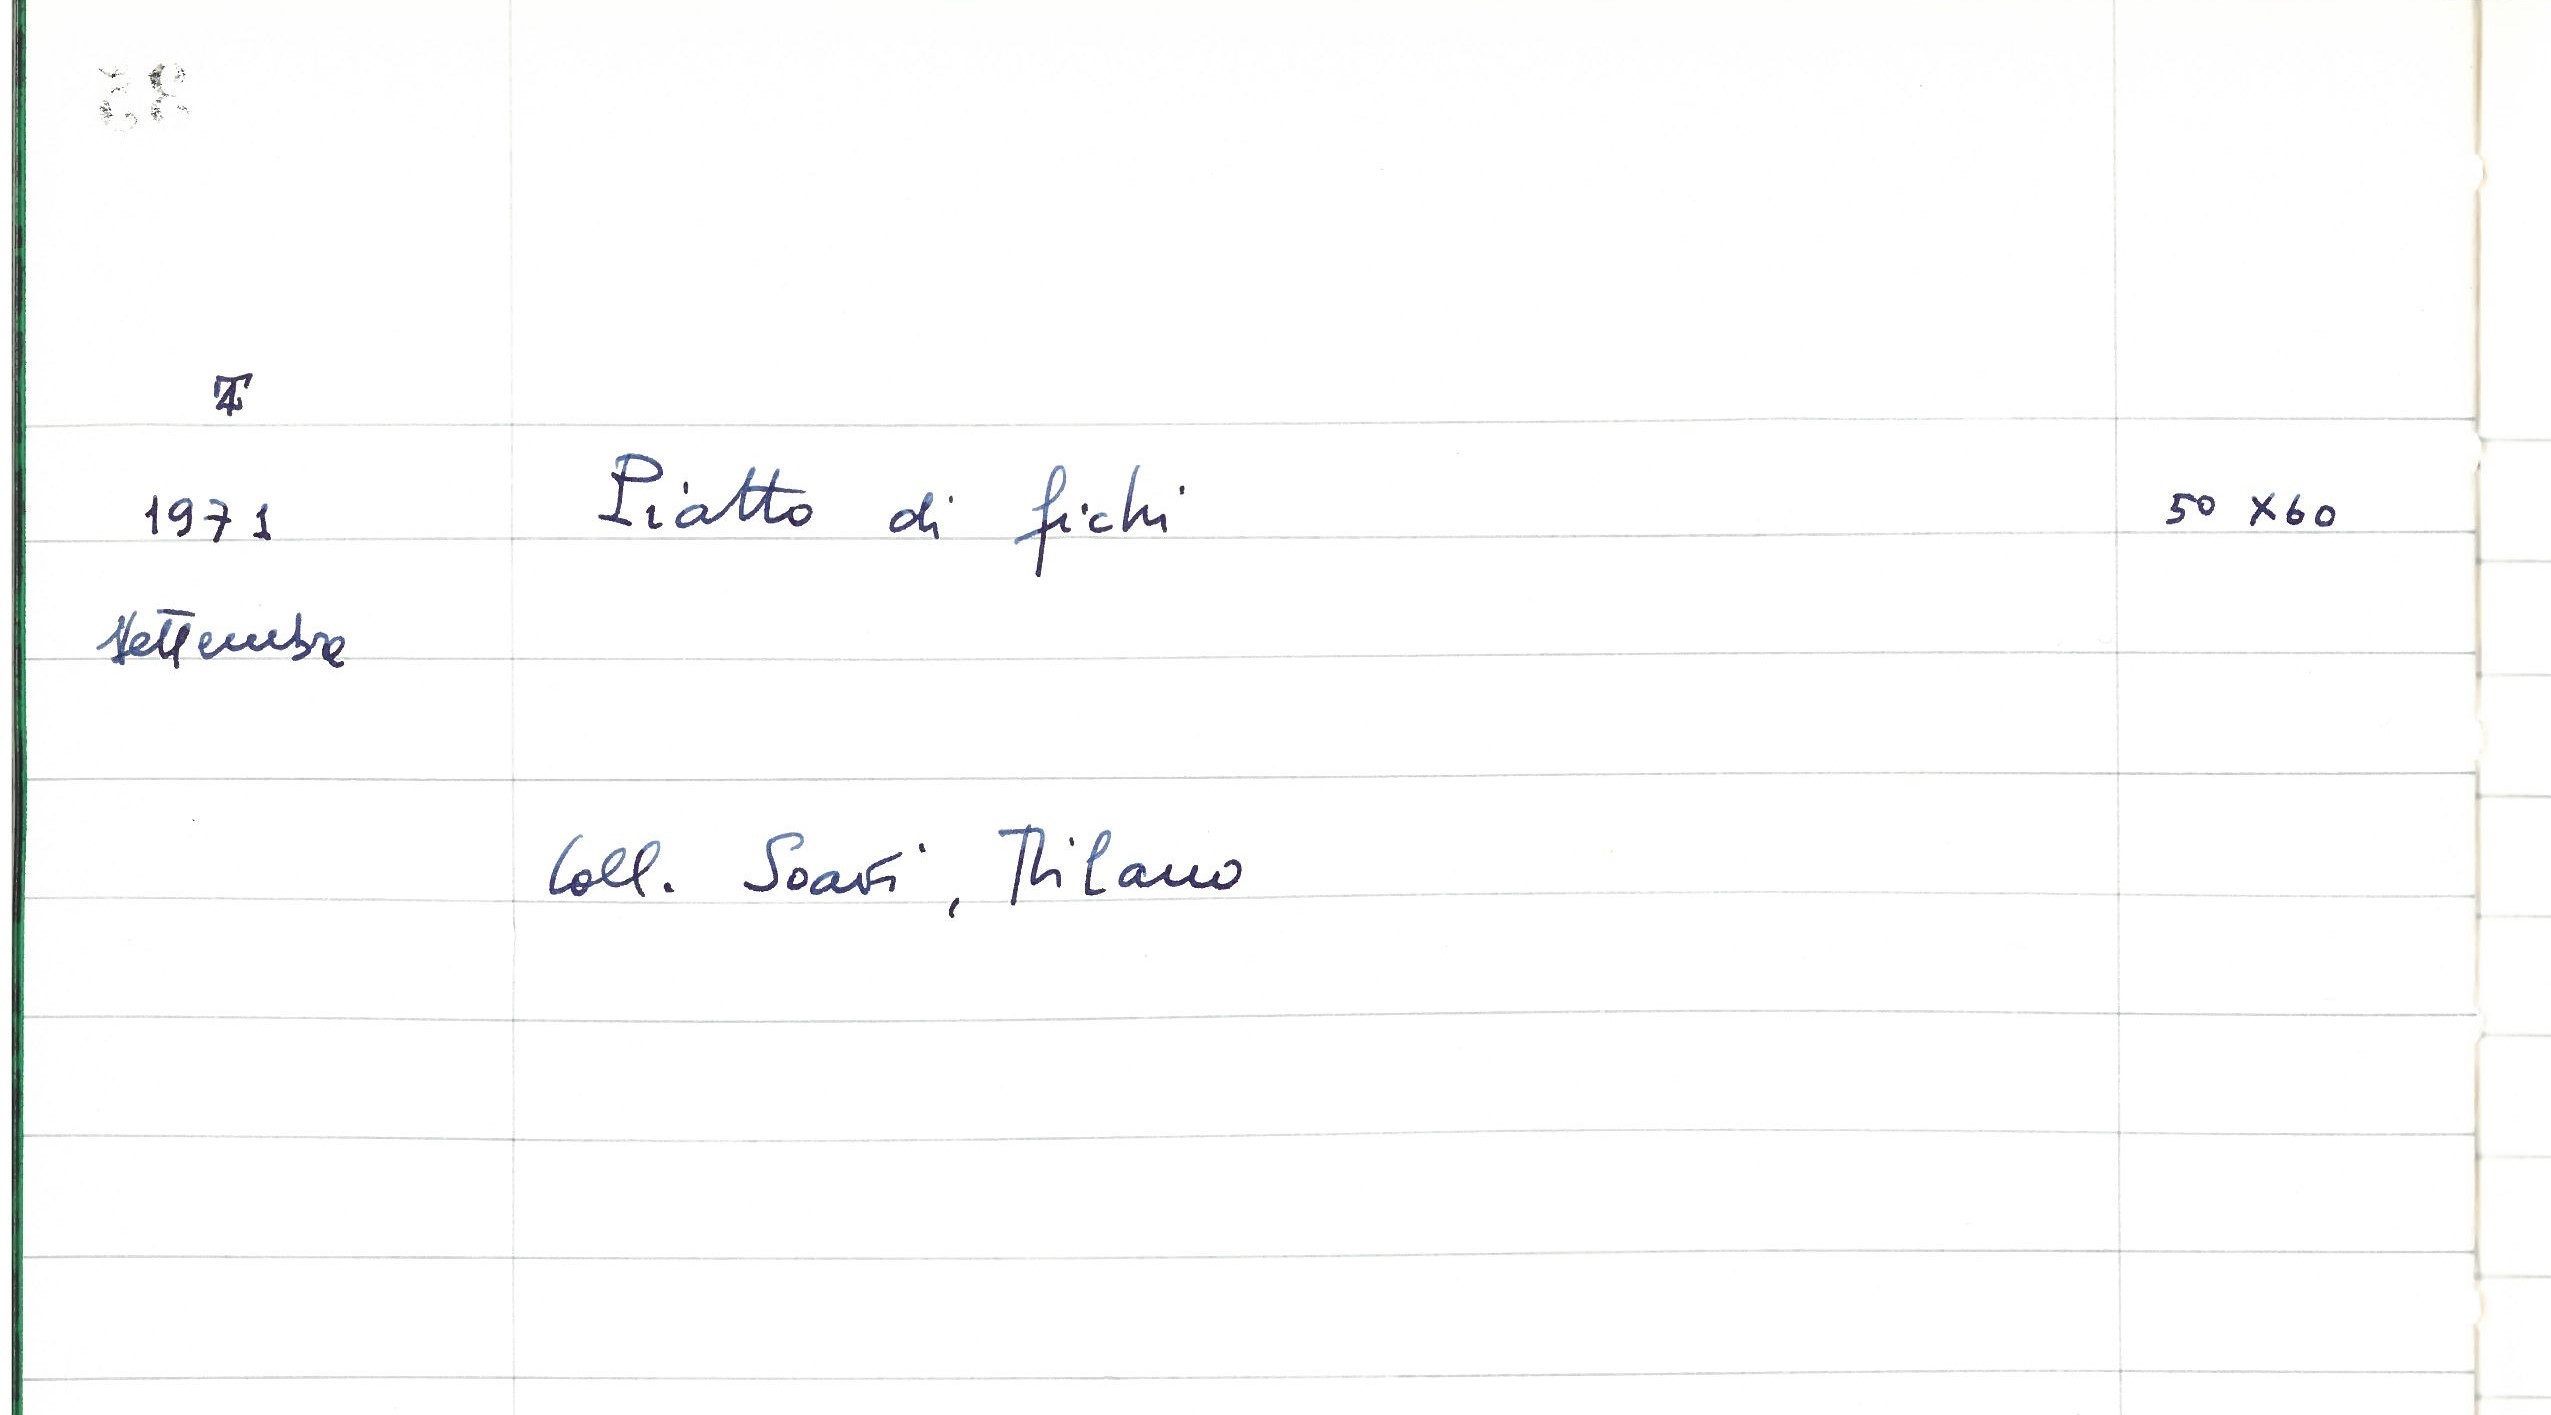 1971 Piatto di fichi 50 x 60
Settembre
Coll. Soavi, Milano